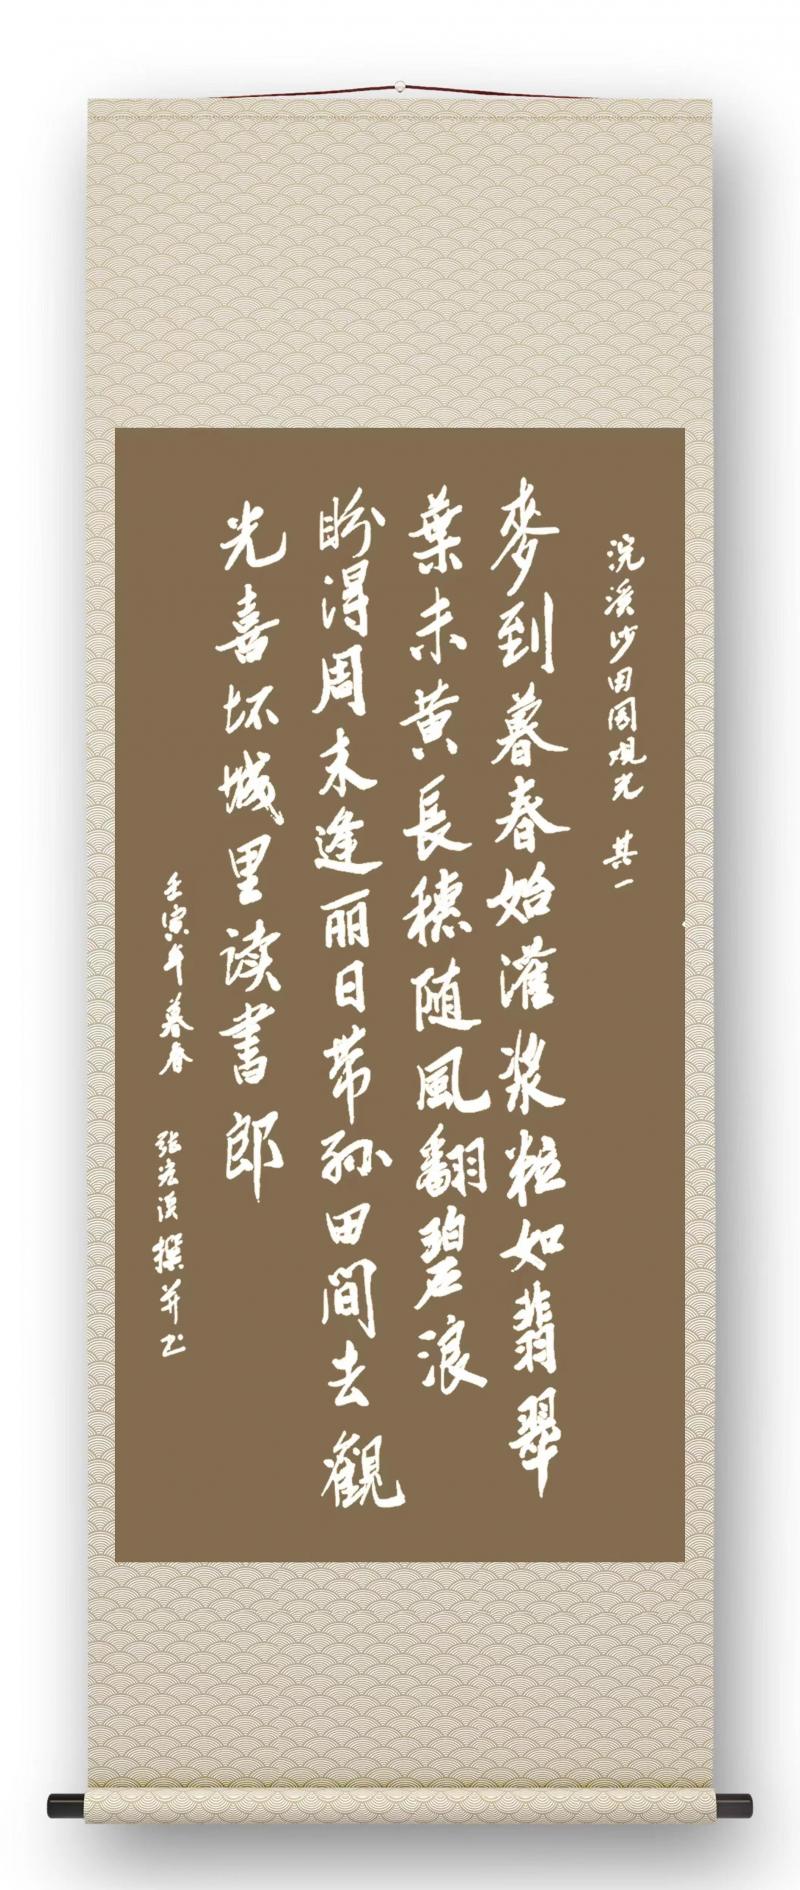 浣溪沙田园观光 其一
麥到暮春始灌浆粒如翡翠
葉未黄長穗随風翻碧浪
盼得周末逢丽日带孙田間去觀
光喜坏城里读书郎
壬寅年暮春 张宏溪撰并书